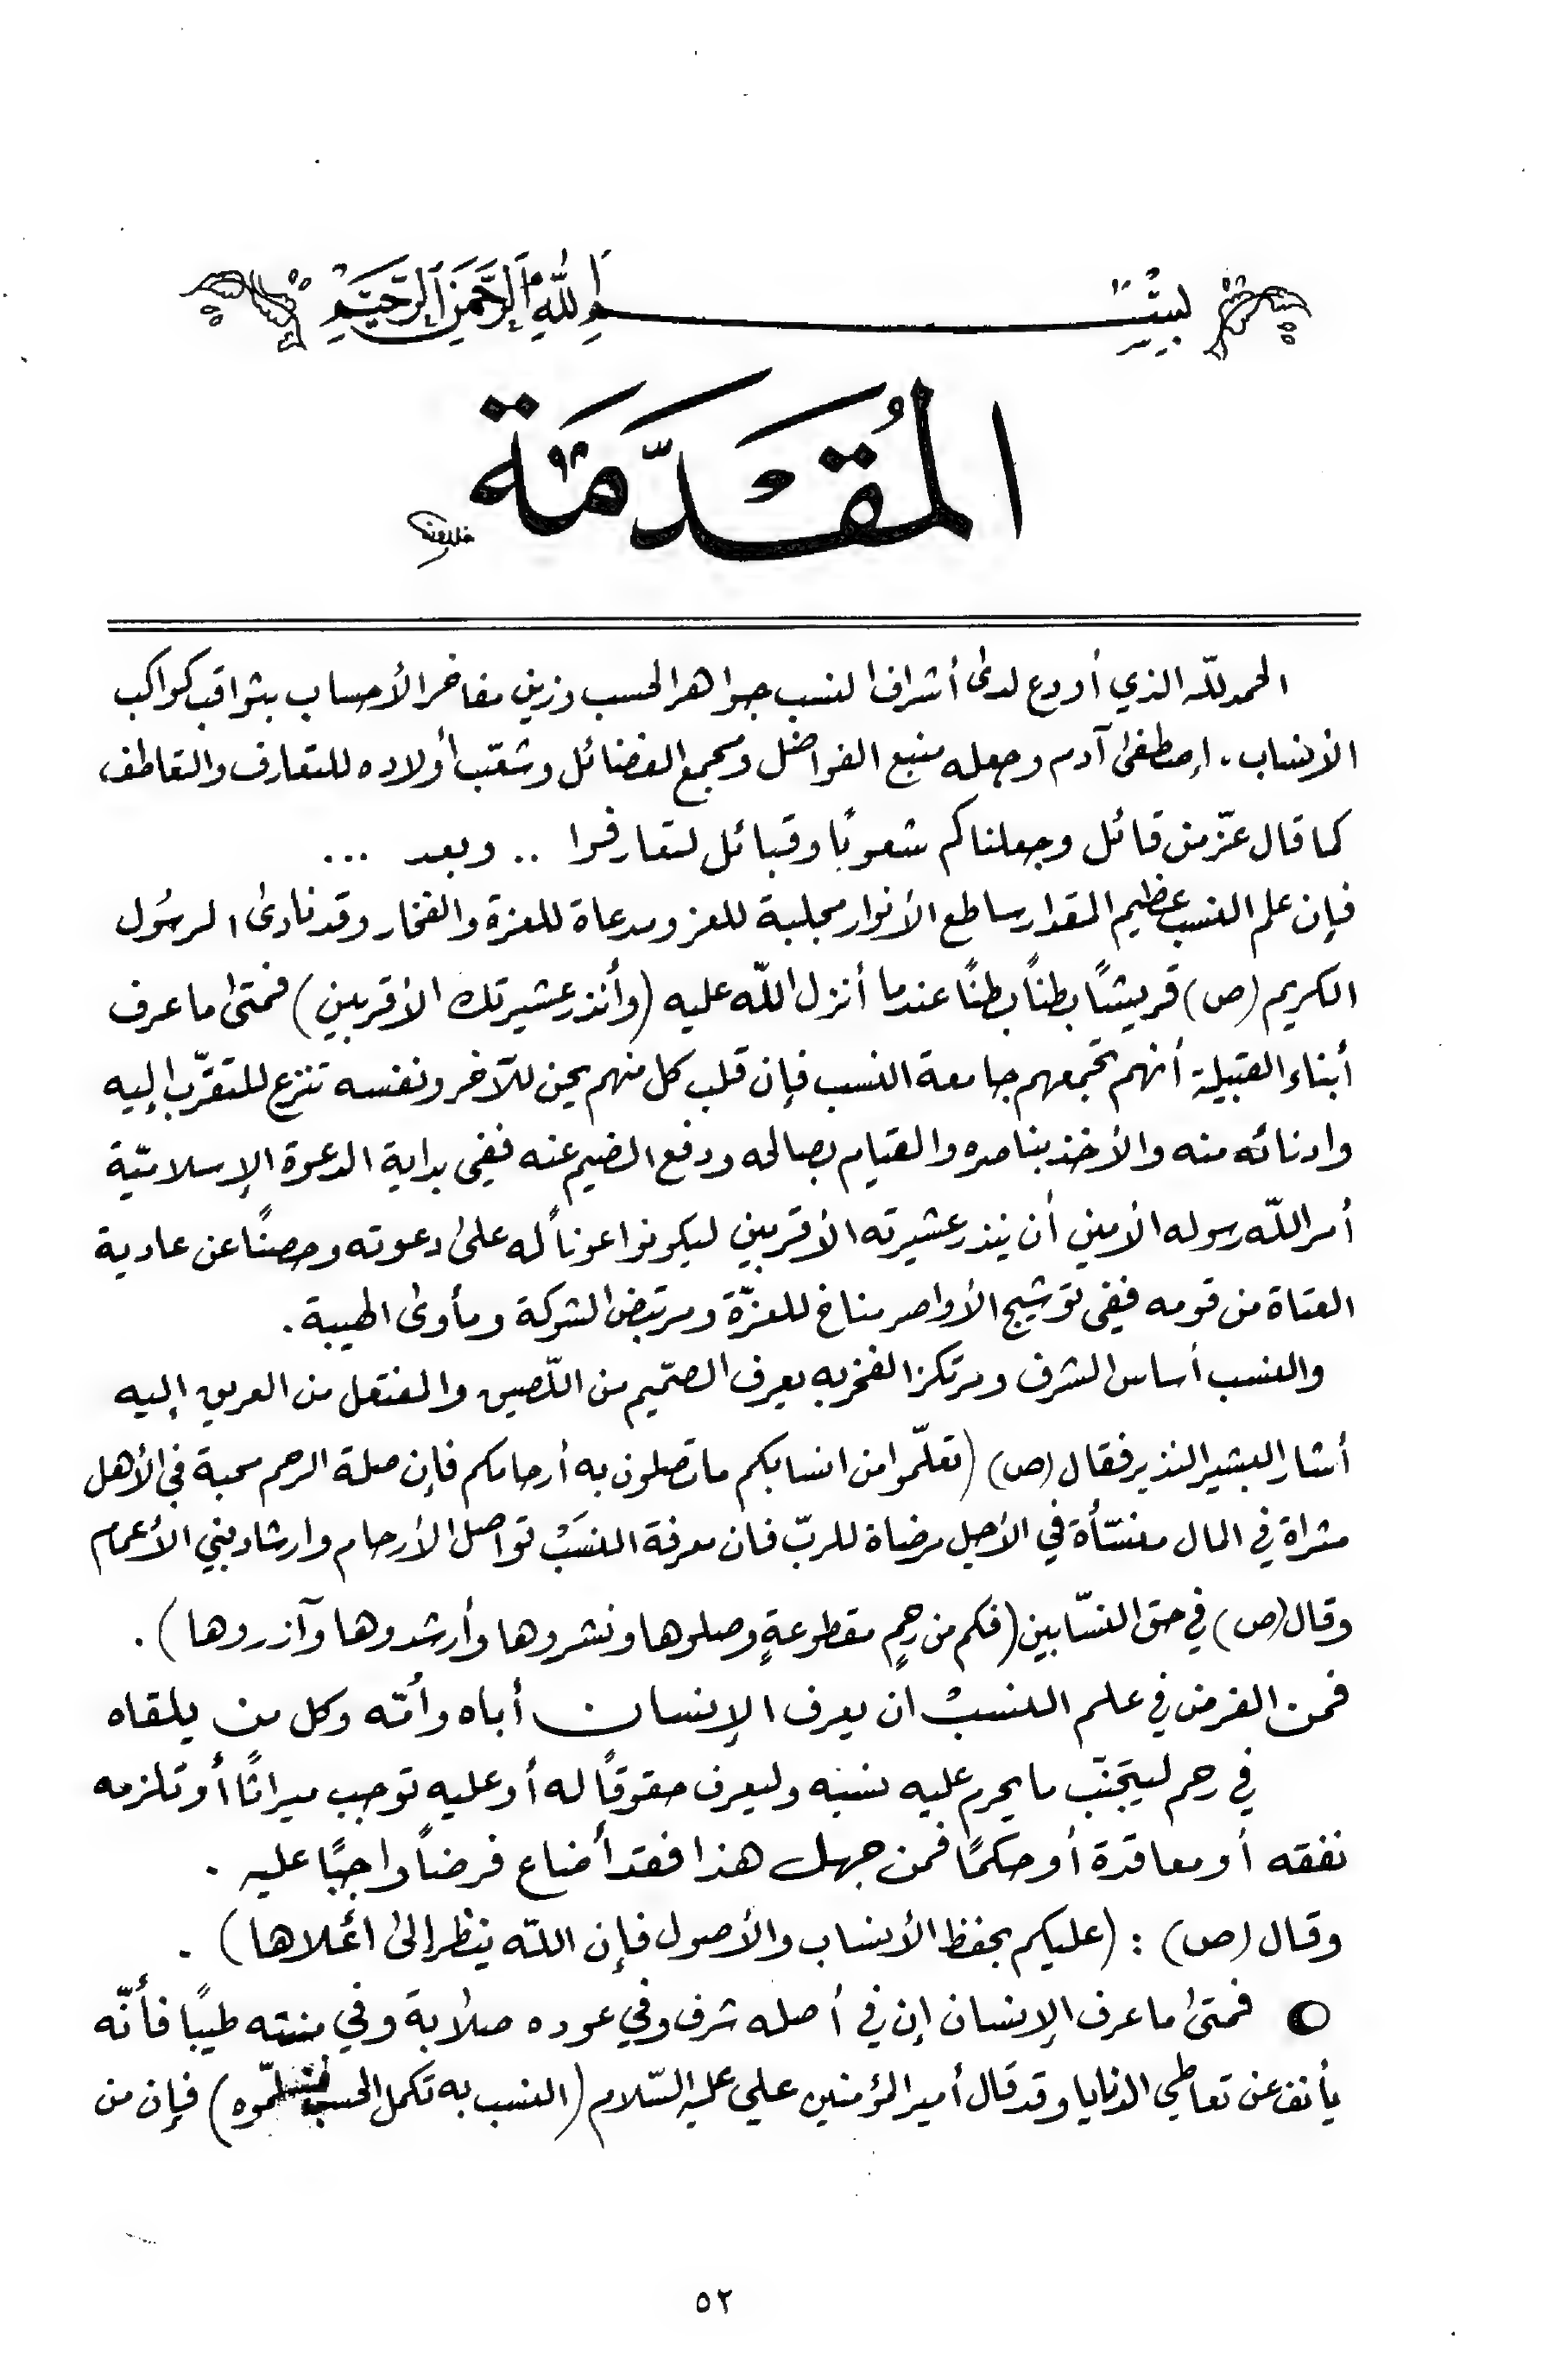 بسم الله الرحمن الرحيم
المُقَدّمَة
الحمد للّه الذي أودع لدىٰ أشراف النسب جواهر الحسب وزين مفاخر الأحساب بثواقب كواكب
الأنساب . إصطفىٰ آدم وجعله منبع الفواضل ومجمع الفضائل وشعّب أولاده للتعارف والتعاطف
كما قال عزّ من قائل وجعلناكم شعوبًا وقبائل لتعارفوا .. وبعد ...
فإن علم النسب عظيم المقدار ساطع الأنوار مجلبة للعز ومدعاة للعزة والفخار وقد نادىٰ الرسُول
الكريم (ص) قريشًا بطناً بطنًا عندما أنزل اللّه عليه (وأنذر عشيرتك الأقربين) فمتىٰ ما عرف
أبناء القبيلة أنهم تجمعهم جامعة النسب فإن قلب كل منهم يحن للآخر ونفسه تنزع للتقرّب إليه
وادنائه منه والأخذ بناصره والقيام بصالحه ودفع الضيم عنه ففي بداية الدعوة الإسلاميّة
أمر اللّه رسوله الأمين أن ينذر عشيرته الأقربين ليكونوا عوناً له علىٰ دعوته وحصنًا عن عادية
العتاة من قومه ففي توشيج الأواصر مناخ للعزّة ومرتبض الشوكة ومأوىٰ الهيبة .
والنسب أساس الشرف ومرتكز الفخر به يعرف الصّميم من اللّصيق والمفتعل من العريق إليه
أشار البشير النذير فقال (ص) (تعلّموا من انسابكم ما تصلون به أرحامكم فإن صلة الرحم محبة في الأهل
مثراة في المال منسّأة في الأجل مرضاة للربّ فان معرفة النسَبْ تواصل الأرحام وارشاد بني الأعمام
وقال (ص) في حق النسّابين (فكم من رحمٍ مقطوعةٍ وصلوها ونشروها وأرشدوها وآزروها) .
فمن الغرض في علم النسبْ ان يعرف الإنسان أباه وأمّه وكل من يلقاه
في رحم ليتجنّب ما يحرم عليه نسبه وليعرف حقوقًا له أو عليه توجب ميراثًا أو تلزمه
نفقه أو معاقدة أو حكمًا فمن جهل هذا فقد أضاع فرضاً واجبًا عليه .
وقال (ص) : (عليكم بحفظ الأنساب والأصول فإن اللّه ينظر الىٰ أعلاها) .
فمتىٰ ما عرف الإنسان إن في أصله شرف وفي عوده صلابة وفي منبته طيبًا فأنّه
يأنف عن تعاطي الدنايا وقد قال أمير المؤمنين علي عليه السّلام (النسب به تكمل الحسب فتعلّموه) فإن من
٥٢